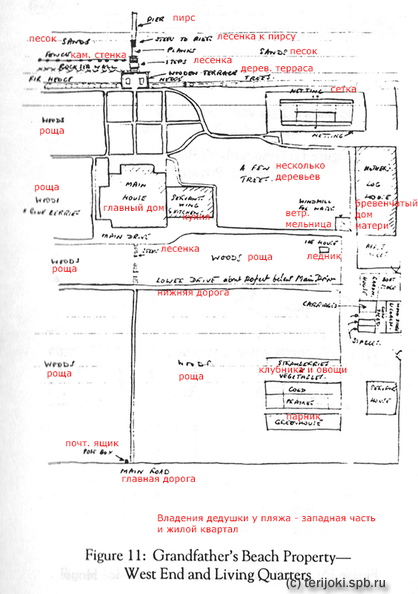 PIER пирс
песок SANDS STEPS TO PIER лесенка к пирсу
FENCE PLANKS SANDS песок
кам. стенка
STEPS лесенка
WOODEN TERRACE дерев. терраса
FIR HEDGE TREES
NETTING сетка
WOODS
роща
NETTING
A FEW несколько
TREES деревьев
MOTHERS
LOG
LODGE
бревенчатый
дом
матери
роща
WOODS
MAIN
HOUSE
главный дом
SERVANT
WING
KITCHEN
кухня
WINDMILL
FOR WATER
ветр.
мельница
MAIN DRIVE
STEPS лесенка
ICE HOUSE
ледник
WOODS роща
WOODS
роща
LOWER DRIVE about 20 feet below Main Drive
нижняя дорога
CARRIAGES
STABLES
WOODS
роща
WOODS
роща
STRAWBERRIES
клубника и овощи
VEGETABLES
COLD
FRAMES
парник
GREENHOUSE
HOUSE
почт. ящик
POST BOX
MAIN ROAD
главная дорога
Владения дедушки у пляжа - западная часть
и жилой квартал
Figure 11: Grandfather's Beach Property—
West End and Living Quarters
(c) terijoki.spb.ru